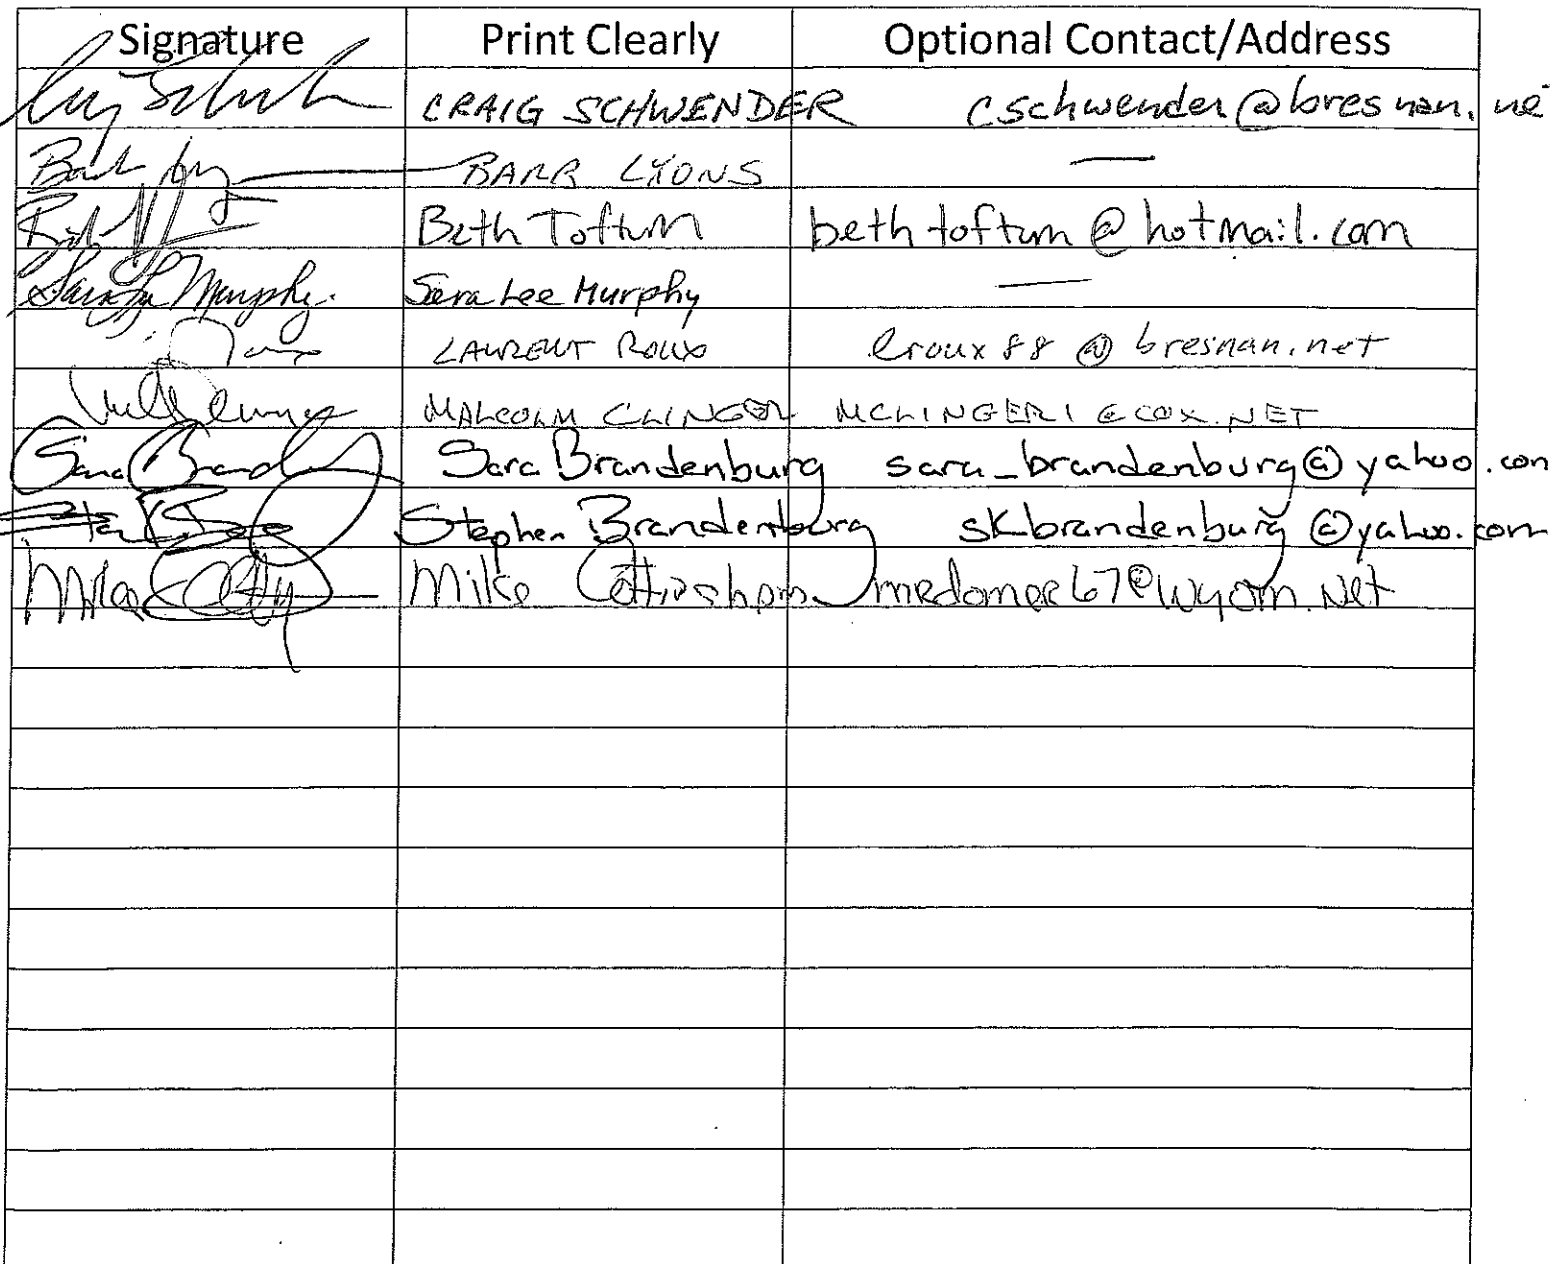 Signature Print Clearly Optional Contact/Address
CRAIG SCHWENDER cschwender@bresnan.ne
BARB LYONS —
Beth Toftum bethtoftum@hotmail.com
Sara Lee Murphy Sara Lee Murphy —
LAURENT ROUX lroux88@bresnan.net
MALCOLM CLINGER MCLINGER1@COX.NET
Sara Brandenburg sara_brandenburg@yahoo.com
Stephen Brandenburg skbrandenburg@yahoo.com
Mike Mike